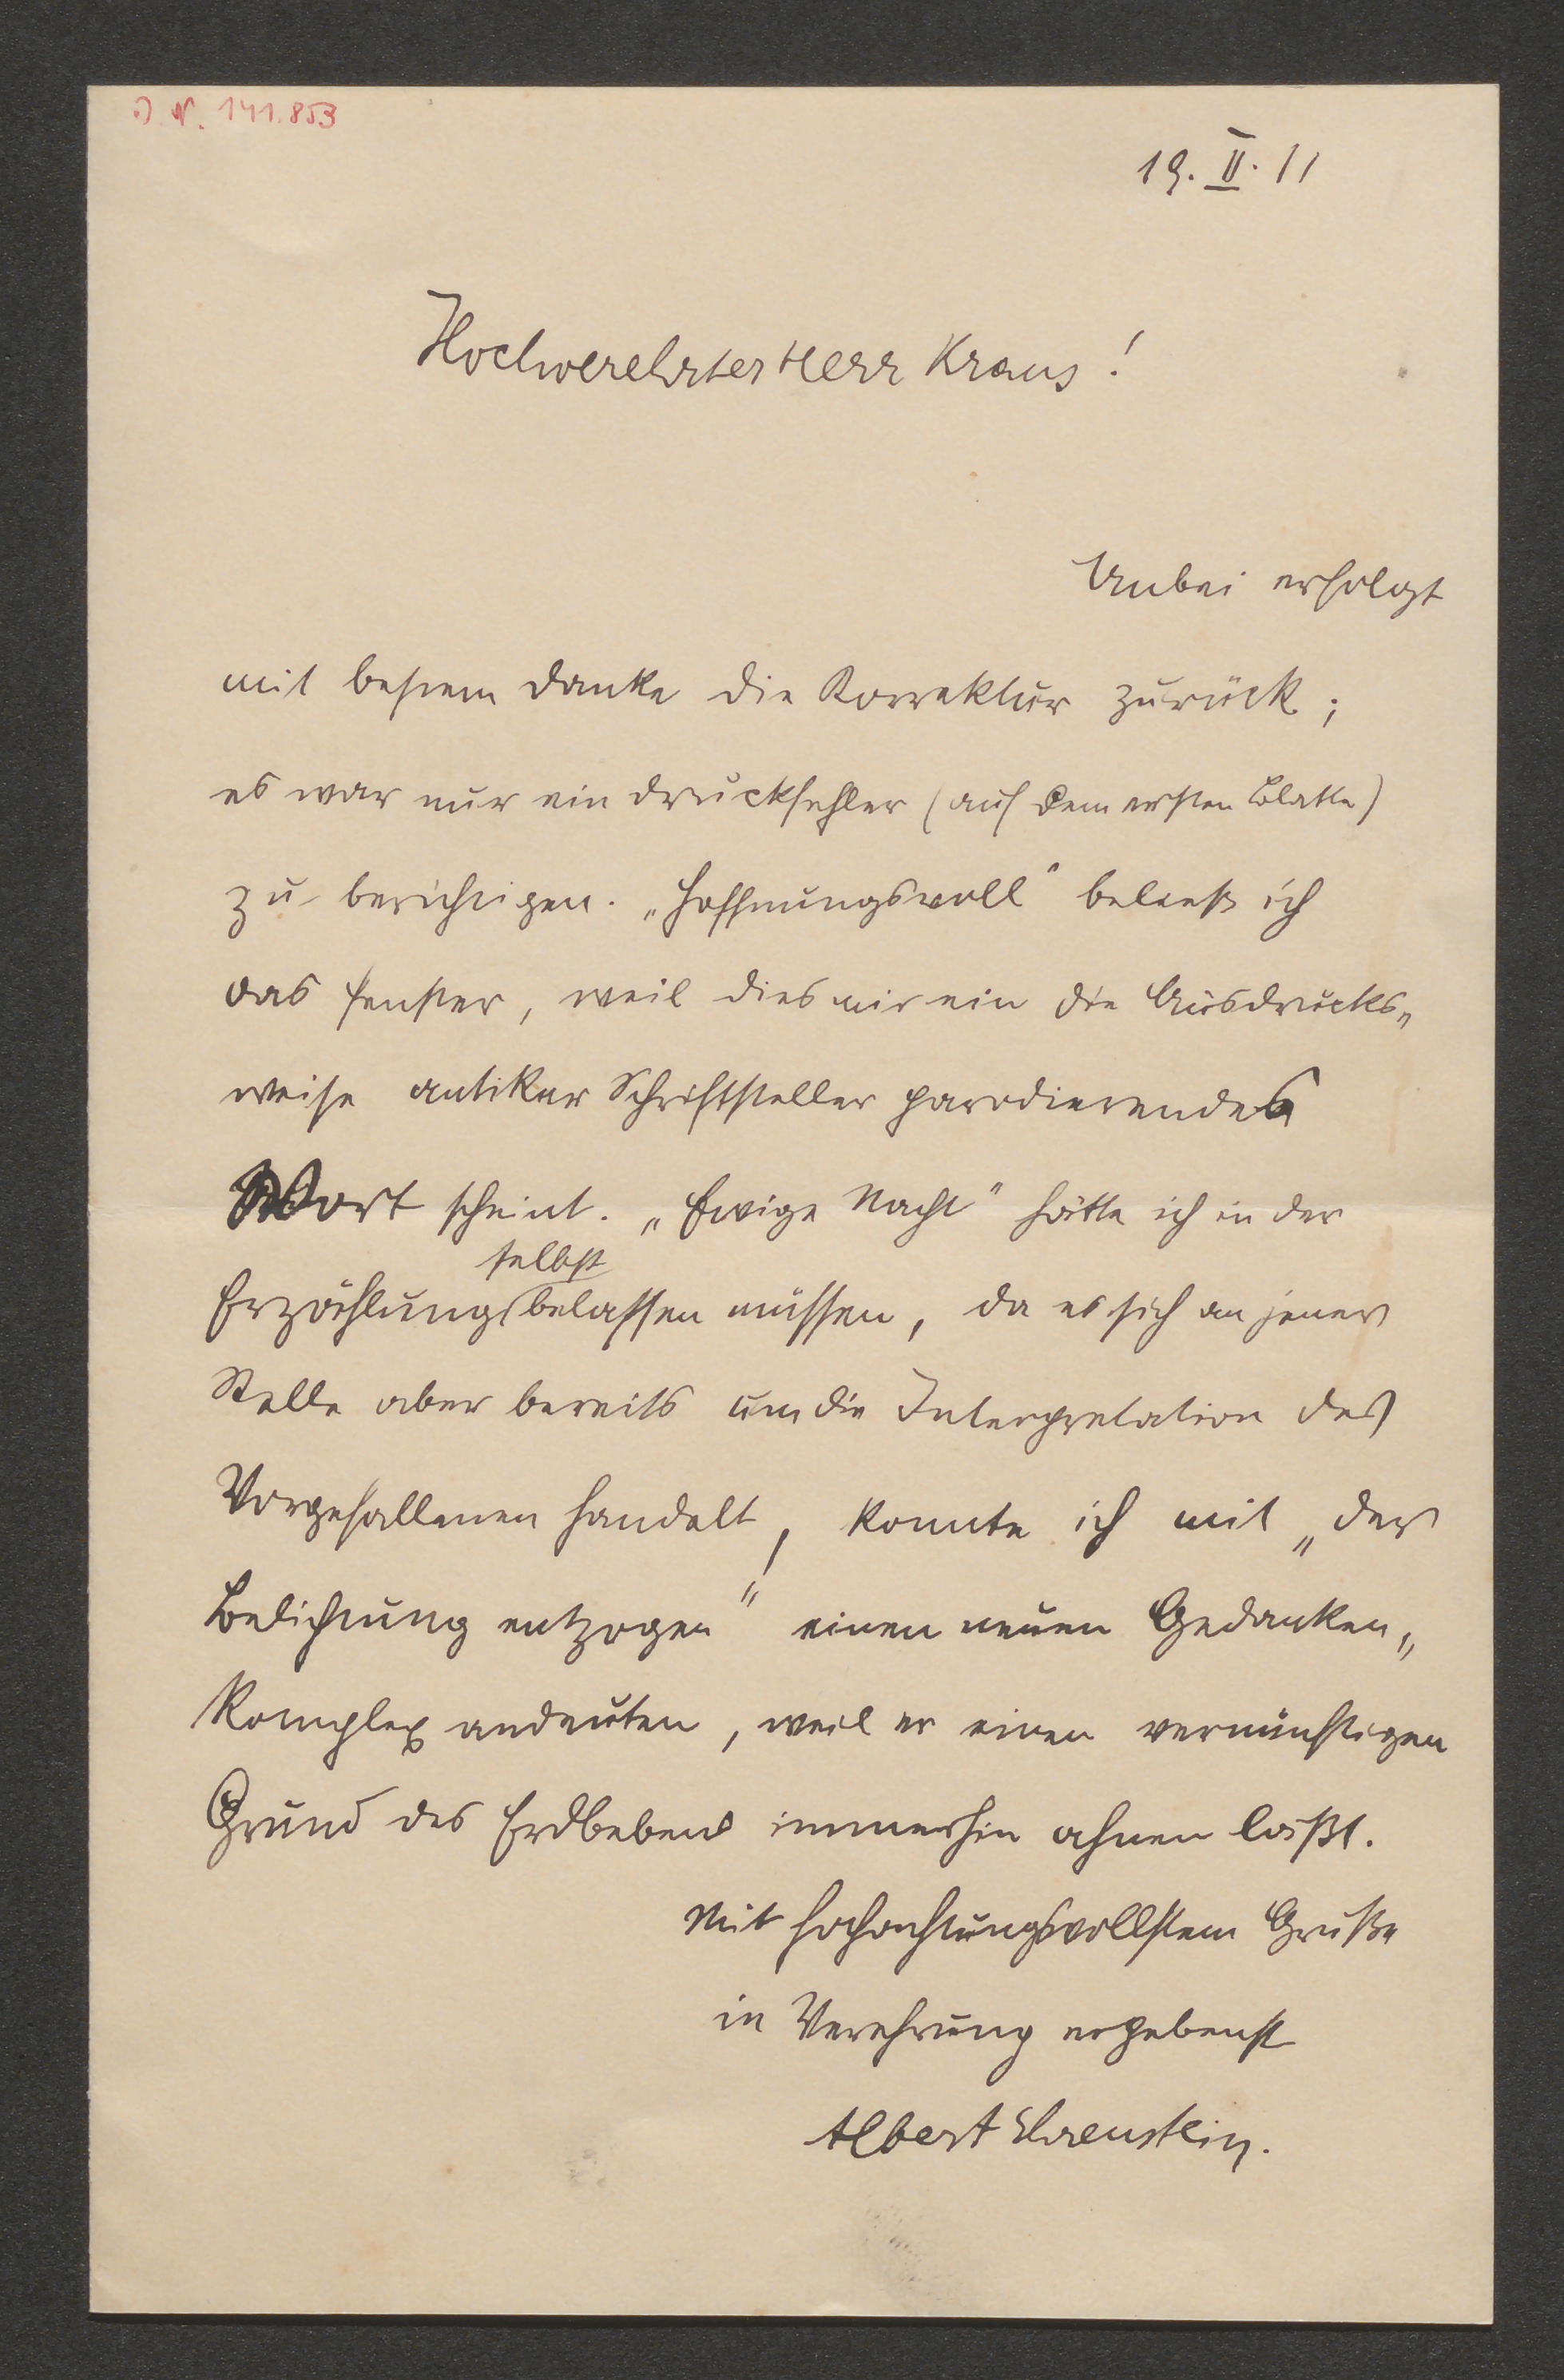 J. N. 141.853
19. II. 11
Hochverehrter Herr Kraus!
Anbei erfolgt
mit bestem Danke die Korrektur zurück;
es war nur ein Druckfehler (auf dem ersten Blatte)
zu berichtigen. „Hoffnungsvoll“ beließ ich
das Fenster, weil dies mir ein die Ausdrucks„
weise antiker Schriftsteller parodierendes
Wort scheint. „Ewige Nacht“ hätte ich in der
selbst
Erzählung belassen müssen, da es sich an jener
Stelle aber bereits um die Interpretation des
Vorgefallenen handelt, konnte ich mit „der
Belichtung entzogen“ einen neuen Gedanken„
komplex andeuten, weil er einen vernünftigen
Grund des Erdbebens immerhin ahnen läßt.
Mit hochachtungsvollstem Gruße
in Verehrung ergebenst
Albert Ehrenstein.